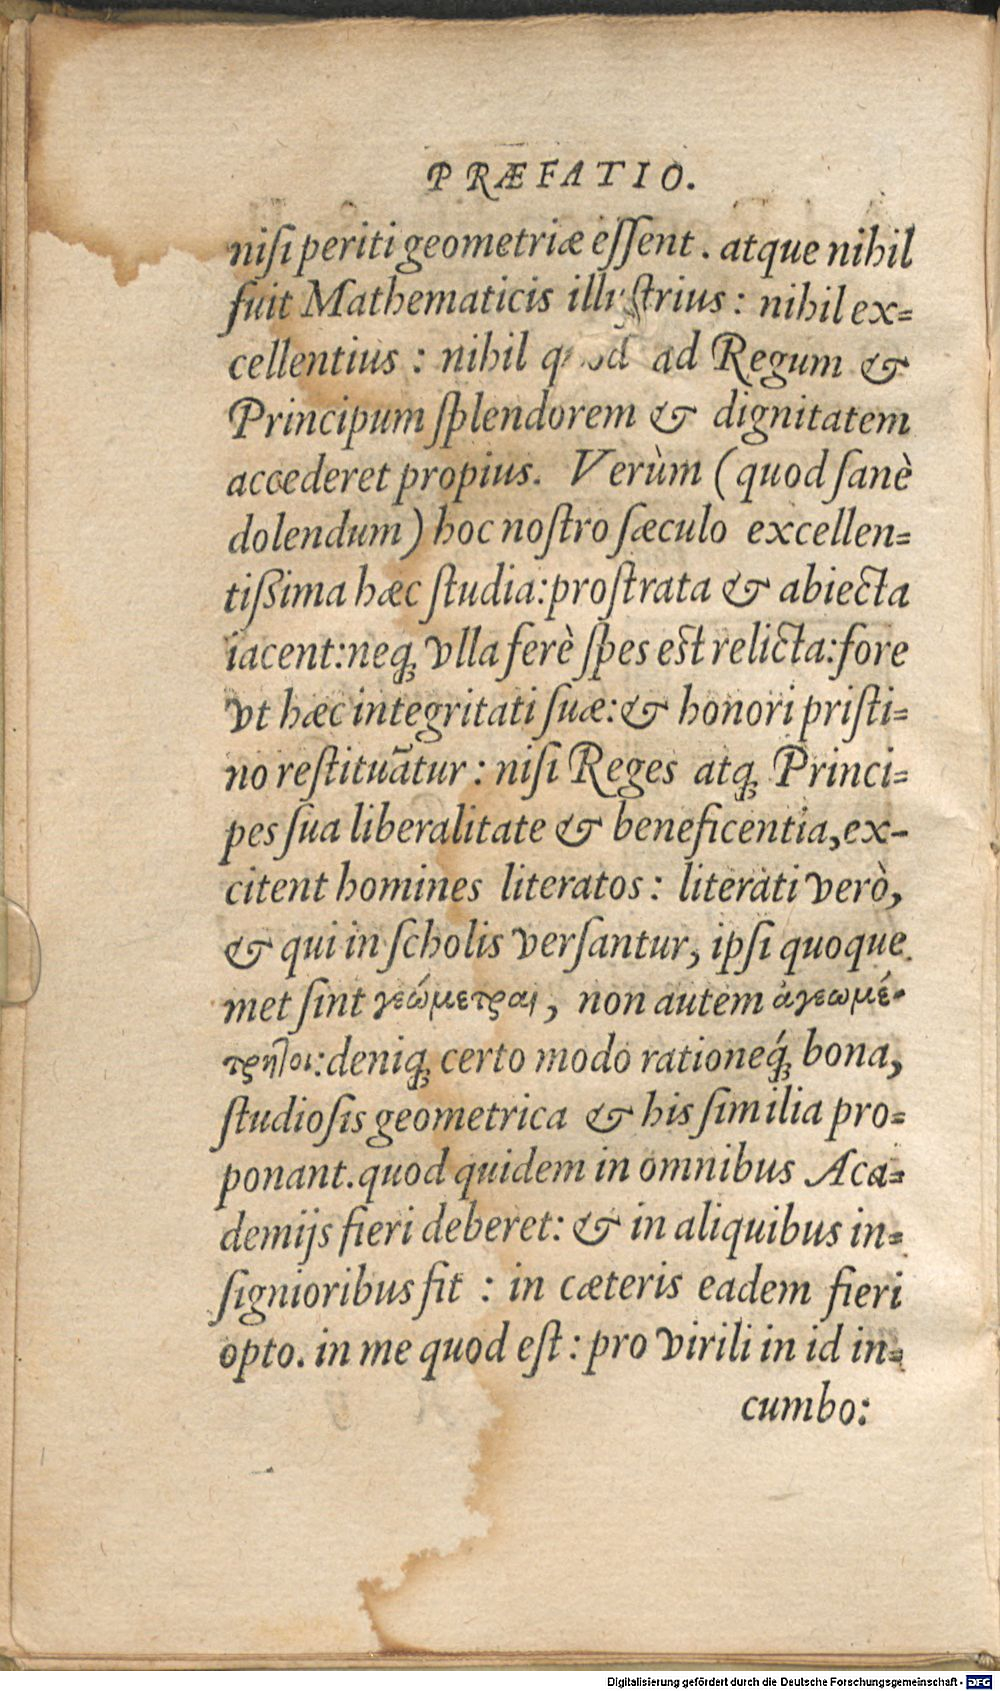 PRÆFATIO.
niſi periti geometriæ eſſent. atque nihil
fuit Mathematicis illuſtrius: nihil ex=
cellentius: nihil quod ad Regum &
Principum ſplendorem & dignitatem
accederet propius. Verùm (quod ſanè
dolendum) hoc noſtro ſæculo excellen=
tißima hæc ſtudia: proſtrata & abiecta
iacent: neq; vlla ferè ſpes est relicta: fore
vt hæc integritati ſuæ: & honori priſti=
no reſtituātur: niſi Reges atq; Princi=
pes ſua liberalitate & beneficentia, ex-
citent homines literatos: literati verò,
& qui in ſcholis verſantur, ipſi quoque
met ſint γεώμετραι, non autem ἀγεωμέ-
τρητοι: deniq; certo modo rationeq́; bona,
ſtudioſis geometrica & his ſimilia pro=
ponant. quod quidem in omnibus Aca=
demijs fieri deberet: & in aliquibus in=
ſignioribus fit: in cæteris eadem fieri
opto. in me quod eſt: pro virili in id in=
cumbo:
Digitalisierung gefördert durch die Deutsche Forschungsgemeinschaft - DFG